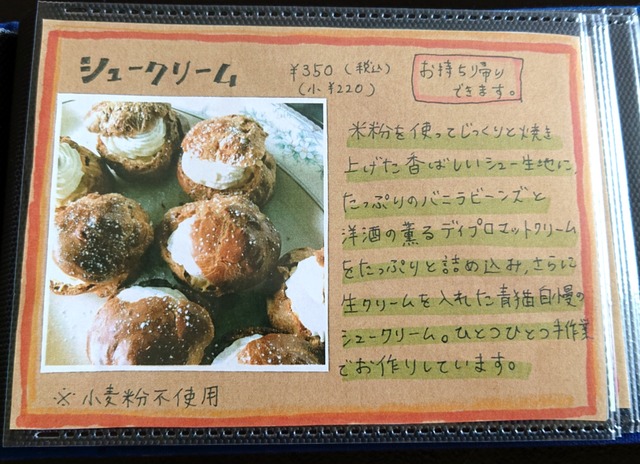 シュークリーム
¥350（税込）
（小 ¥220）
お持ち帰り
できます。
米粉を使ってじっくりと焼き
上げた香ばしいシュー生地に、
たっぷりのバニラビーンズと
洋酒の薫るディプロマットクリーム
をたっぷりと詰め込み、さらに
生クリームを入れた青猫自慢の
シュークリーム。ひとつひとつ手作業
でお作りしています。
※小麦粉不使用